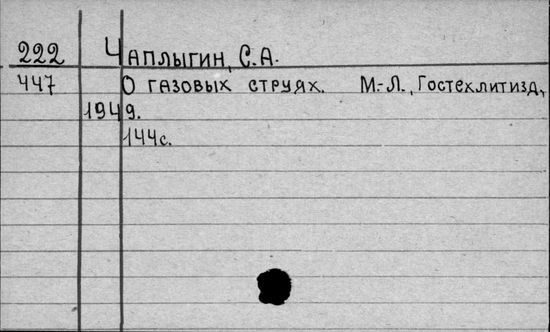 222 Чаплыгин, С.А.
447 О газовых струях. М.-Л., Гостехлитизд,
1949.
144с.